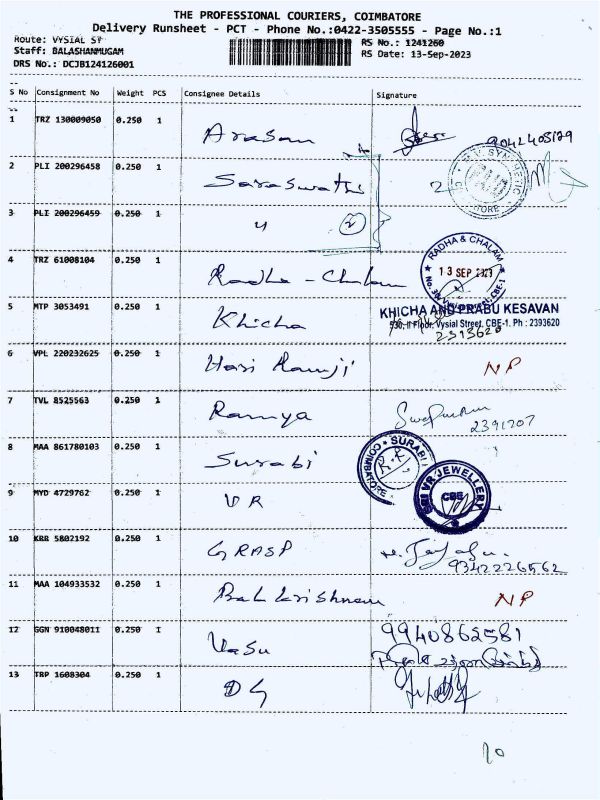 THE PROFESSIONAL COURIERS, COIMBATORE
Delivery Runsheet - PCT - Phone No.:0422-3505555 - Page No.:1
Route: VYSIAL ST
RS No.: 1241260
Staff: BALASHANMUGAM
RS Date: 13-Sep-2023
DRS No.: DCJB124126001
S No Consignment No Weight PCS Consignee Details Signature
1 TRZ 130009050 0.250 1 Arasan
2 PLI 200296458 0.250 1 Saraswathi 2
3 PLI 200296459 0.250 1 " 2
4 TRZ 61008104 0.250 1 Radha - Chalam RADHA & CHALAM
13 SEP 2023
5 MTP 3053491 0.250 1 Khicha KHICHA AND PRABU KESAVAN
530, II Floor, Vysial Street, CBE-1. Ph : 2393620
2393620
6 VPL 220232625 0.250 1 Hari Ramji NP
7 TVL 8525563 0.250 1 Ramya
2391707
8 MAA 861780103 0.250 1 Surabi SURABI COIMBATORE
9 MYD 4729762 0.250 1 VR SRI VR JEWELLERY CBE
10 KRR 5802192 0.250 1 GRASP
9342226562
11 MAA 104933532 0.250 1 Balkrishnan NP
12 GGN 910048011 0.250 1 Vasu 9940862581
13 TRP 1608304 0.250 1 DG
10